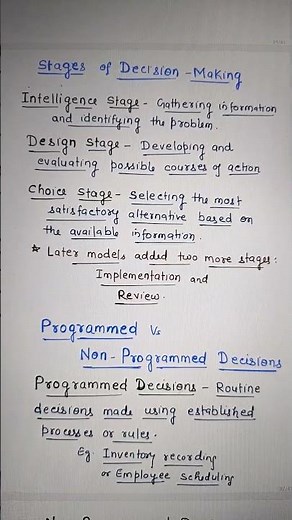 Stages of Decision-Making
Intelligence Stage - Gathering information
and identifying the problem.
Design Stage - Developing and
evaluating possible courses of action
Choice Stage - Selecting the most
satisfactory alternative based on
the available information.
* Later models added two more stages:
Implementation and
Review.
Programmed Vs
Non-Programmed Decisions
Programmed Decisions - Routine
decisions made using established
processes or rules.
Eg: Inventory recording
or Employee scheduling